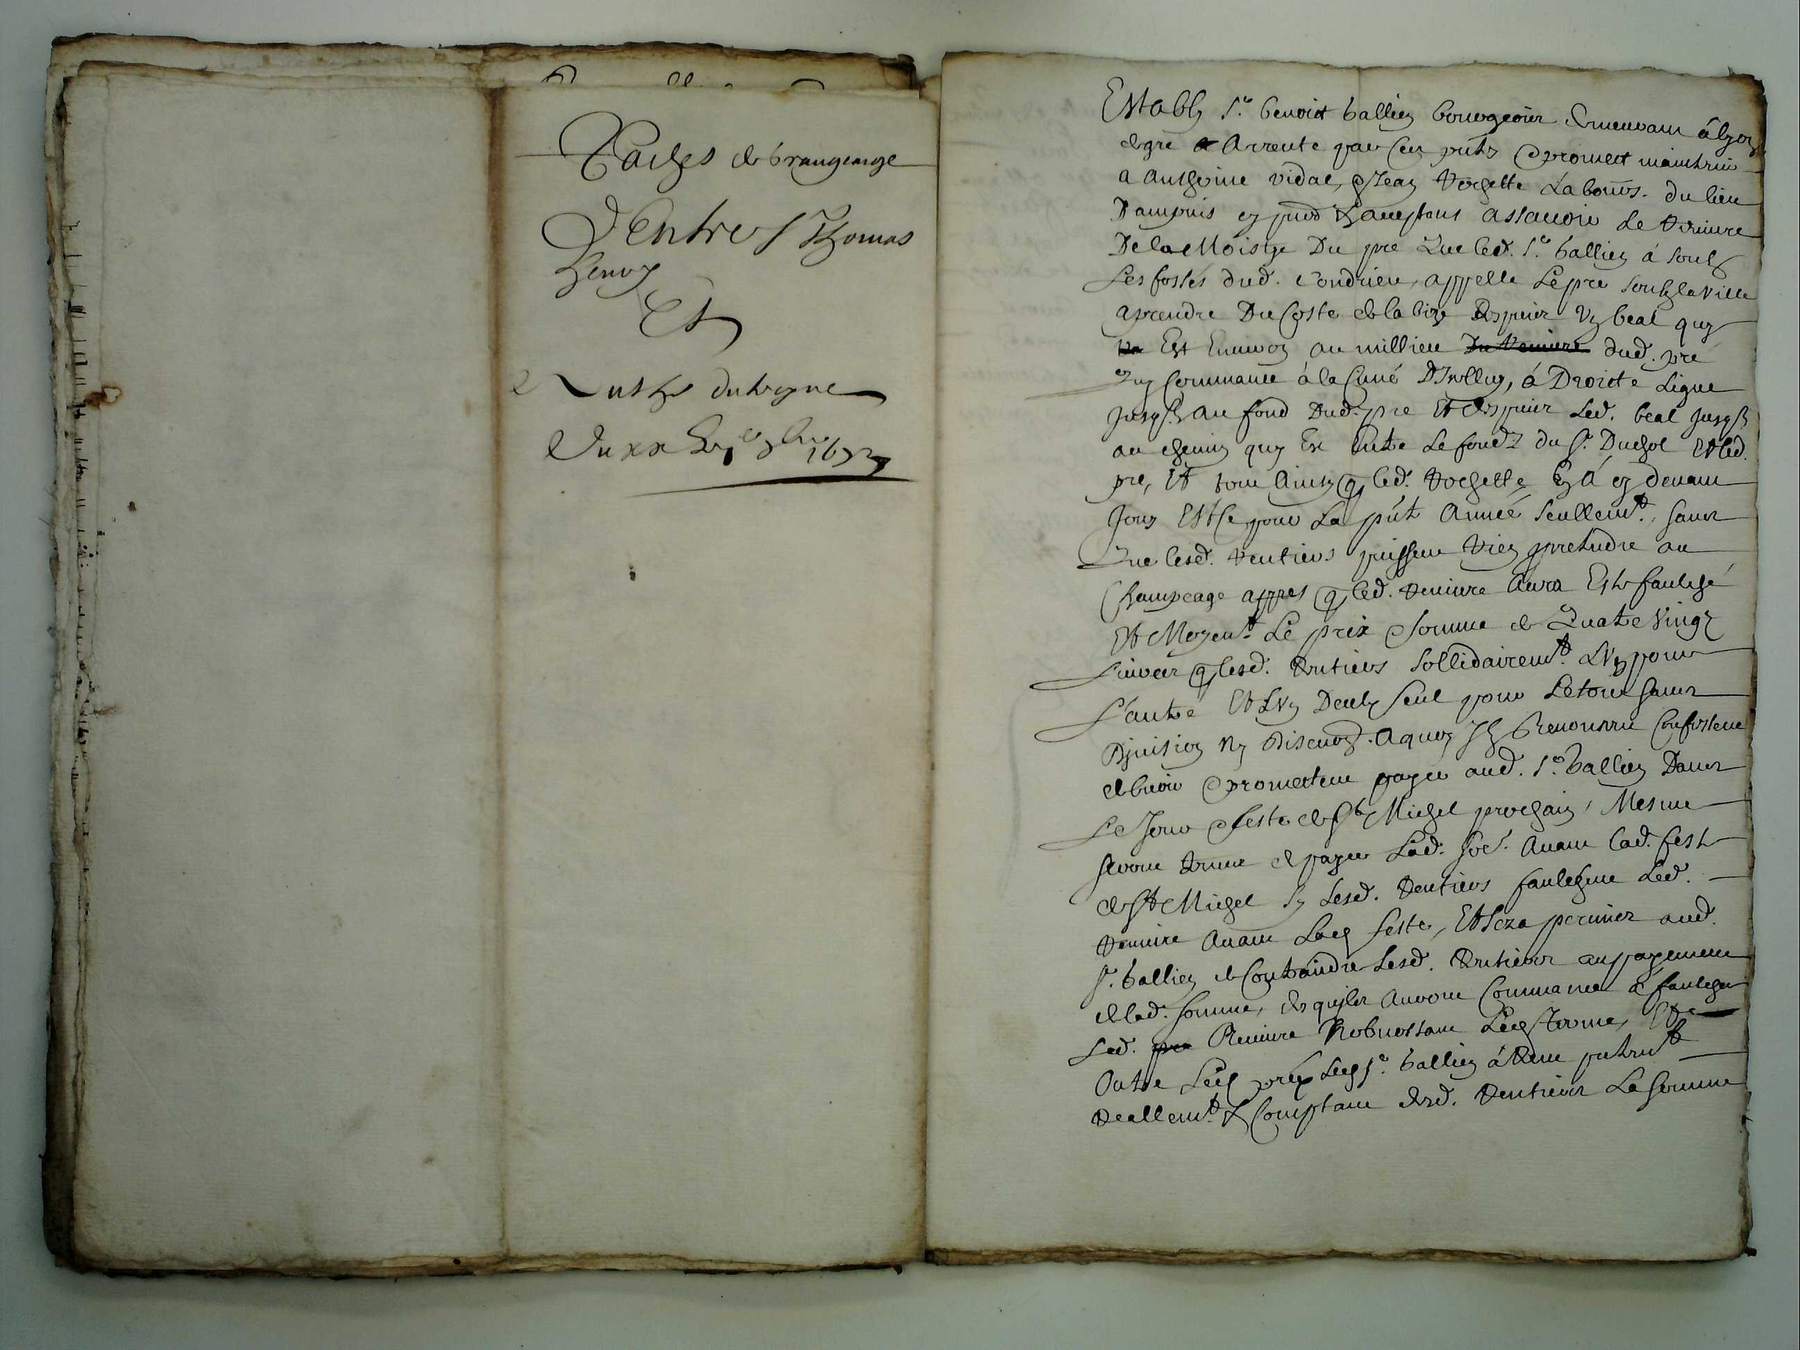 Pactes de
D'entre Thomas
Et
Du xx 1672
Establi Sr benoict ballien bourgeois demeurant à lyon
de gré Arrente par ces pntes & promect maintenir
a Anthoine vidal, & Jean Rochette Labours. du lieu
Dampuis cy pnts & acceptans assauoir Le Reviure
De la Moistye Du pre Que led. Sr. ballien à soubz
Les fossés dud. Condrieu, appellé Le pre soubz la ville
a prendre Du Costé de la bize despuis Un beal quy
Est Enuiron au millieu du Reviure dud. pré
Quy Commance à la à Droicte Ligne
Jusqs. au fond Dud. pre Et despuis Led. beal Jusqs
au chemin quy Est Entre Le fondz du Sr. Duchol Et led.
pre, Et tout Ainsy q led. Rochette En A cy deuant
Jouy Et Ce pour La pnte Année seullemt. sans
Que lesd. Rentiers puissent Rien pretendre au
Champeage appres q led. Reviure Aura Esté fauché
Et Moyent. Le prix & somme de Quatre Vingt
Liures q lesd. Rentiers sollidairemt. L'Un pour
L'autre Et L'Un Deulx seul pour Le tout sans
Diuision Ny Discution. A quoy Ilz Renoncent Confessent
debuoir & promettent payer aud. Sr. ballien Dans
Le Jour & feste de St Michel prochain, Mesme
seront tenus de payer Lad. soe. Auant lad. feste
de St Michel sy Lesd. Rentiers fauchent Led.
Reviure Auant Lad feste, Et sera permis aud.
Sr. ballien de Contraindre Lesd. Rentiers au payement
de lad. somme, des qu'ilz Auront Commancé à faucher
Led. Reviure Nobnostant Led Terme, Et
Outre Led prix Led Sr. ballien à Receu pntemt
Reallemt. & Comptant desd. Rentiers La somme